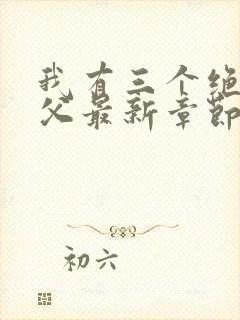 我有三个绝
父最新章节
初六